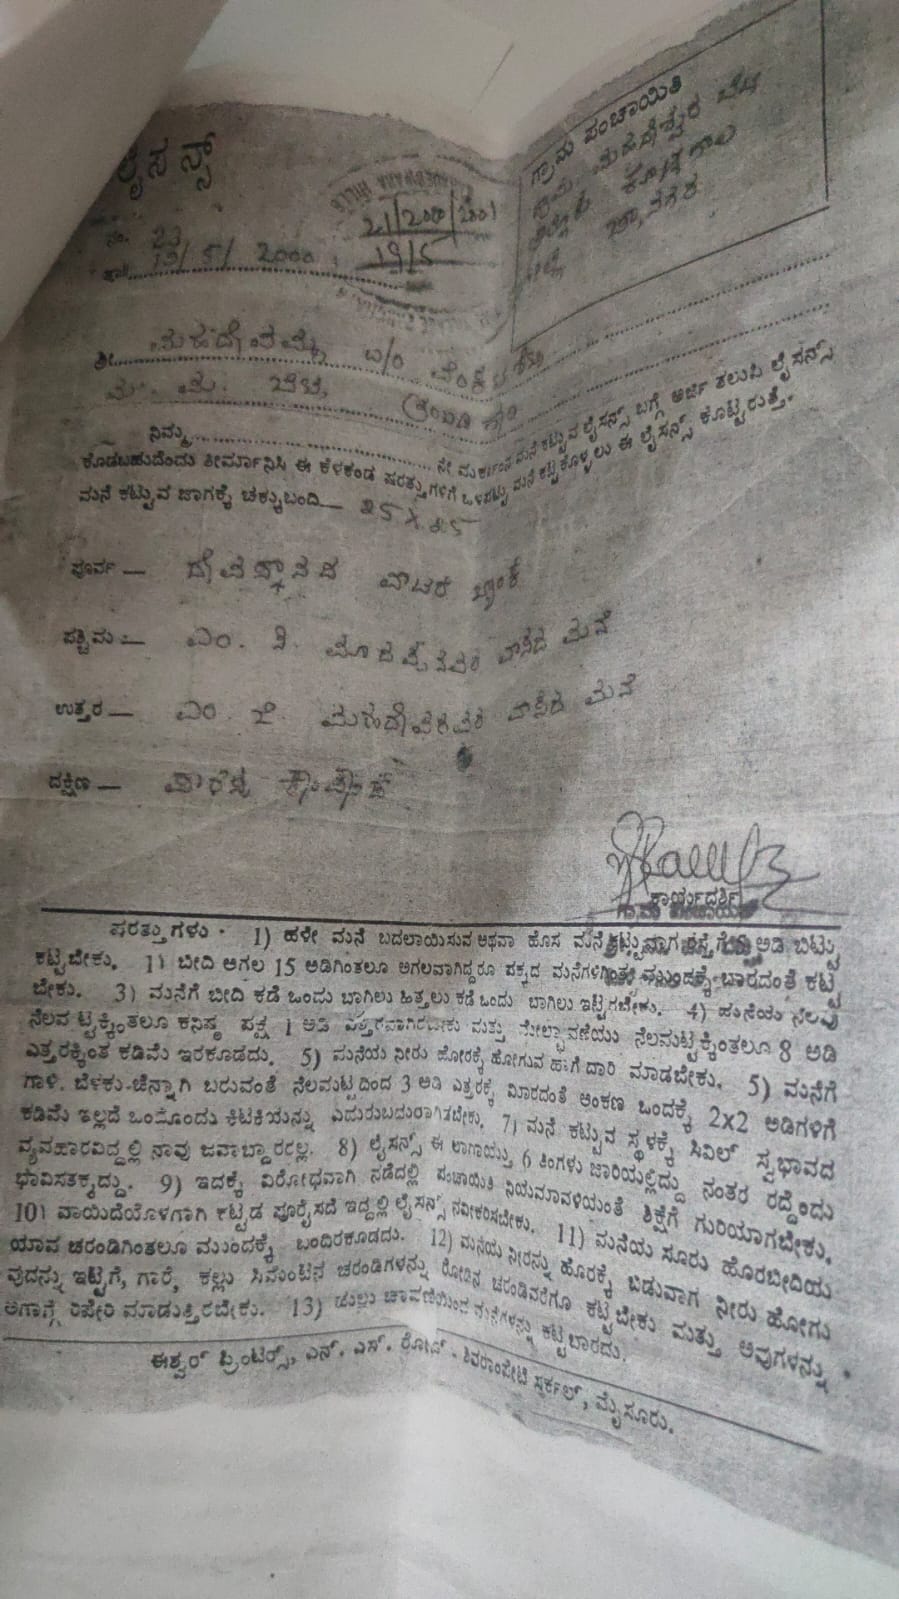 ಲೈಸನ್ಸ್
ಗ್ರಾಮ ಪಂಚಾಯಿತಿ
ಗ್ರಾಮ ಮಹದೇಶ್ವರ ಬೆಟ್ಟ
ಕೊಳ್ಳೇಗಾಲ
ಚಾ.ನಗರ
ನಂ. 23
19/5/2000
21/2000/2001
19/5
ಶ್ರೀ ಮಹದೇವಮ್ಮ
ಮ. ಮ. ಬೆಟ್ಟ
ನಿಮ್ಮ ನೇ ಮನೆ ಕಟ್ಟುವ ಲೈಸನ್ಸ್ ಬಗ್ಗೆ ಅರ್ಜಿ ತಲುಪಿ ಲೈಸನ್ಸ್
ಕೊಡಬಹುದೆಂದು ತೀರ್ಮಾನಿಸಿ ಈ ಕೆಳಕಂಡ ಷರತ್ತುಗಳಿಗೆ ಒಳಪಟ್ಟು ಮನೆ ಕಟ್ಟಿಕೊಳ್ಳಲು ಈ ಲೈಸನ್ಸ್ ಕೊಟ್ಟಿರುತ್ತೆ.
ಮನೆ ಕಟ್ಟುವ ಜಾಗಕ್ಕೆ ಚಕ್ಕುಬಂದಿ—
ಪೂರ್ವ — ದೇವಸ್ಥಾನದ ವಾಟರ್ ಟ್ಯಾಂಕ್
ಪಶ್ಚಿಮ — ವಾಸದ ಮನೆ
ಉತ್ತರ — ಮಹದೇವರವರ ವಾಸದ ಮನೆ
ದಕ್ಷಿಣ —
ಕಾರ್ಯದರ್ಶಿ
ಷರತ್ತುಗಳು - 1) ಹಳೇ ಮನೆ ಬದಲಾಯಿಸುವ ಅಥವಾ ಹೊಸ ಮನೆ ಕಟ್ಟುವಾಗ ರಸ್ತೆಗೆ ಅಡಿ ಬಿಟ್ಟು
ಕಟ್ಟಬೇಕು. 1) ಬೀದಿ ಅಗಲ 15 ಅಡಿಗಿಂತಲೂ ಅಗಲವಾಗಿದ್ದರೂ ಪಕ್ಕದ ಮನೆಗಳಿಗಿಂತ ಮುಂದಕ್ಕೆ ಬಾರದಂತೆ ಕಟ್ಟ
ಬೇಕು. 3) ಮನೆಗೆ ಬೀದಿ ಕಡೆ ಒಂದು ಬಾಗಿಲು ಹಿತ್ತಲು ಕಡೆ ಒಂದು ಬಾಗಿಲು ಇಟ್ಟಿರಬೇಕು. 4) ಮನೆಯ ನೆಲವು
ನೆಲಮಟ್ಟಕ್ಕಿಂತಲೂ ಕನಿಷ್ಠ ಪಕ್ಷ 1 ಅಡಿ ಎತ್ತರವಾಗಿರಬೇಕು ಮತ್ತು ಮೇಲ್ಛಾವಣೆಯು ನೆಲಮಟ್ಟಕ್ಕಿಂತಲೂ 8 ಅಡಿ
ಎತ್ತರಕ್ಕಿಂತ ಕಡಿಮೆ ಇರಕೂಡದು. 5) ಮನೆಯ ನೀರು ಹೋರಕ್ಕೆ ಹೋಗುವ ಹಾಗೆ ದಾರಿ ಮಾಡಬೇಕು. 5) ಮನೆಗೆ
ಗಾಳಿ. ಬೆಳಕು-ಚೆನ್ನಾಗಿ ಬರುವಂತೆ ನೆಲಮಟ್ಟದಿಂದ 3 ಅಡಿ ಎತ್ತರಕ್ಕೆ ಮೀರದಂತೆ ಅಂಕಣ ಒಂದಕ್ಕೆ 2x2 ಅಡಿಗಳಿಗೆ
ಕಡಿಮೆ ಇಲ್ಲದೆ ಒಂದೊಂದು ಕಿಟಕಿಯನ್ನು ಎದುರುಬದುರಾಗಿಡಬೇಕು. 7) ಮನೆ ಕಟ್ಟುವ ಸ್ಥಳಕ್ಕೆ ಸಿವಿಲ್ ಸ್ವಭಾವದ
ವ್ಯವಹಾರವಿದ್ದಲ್ಲಿ ನಾವು ಜವಾಬ್ದಾರರಲ್ಲ. 8) ಲೈಸನ್ಸ್ ಈ ಲಾಗಾಯ್ತು 6 ತಿಂಗಳು ಜಾರಿಯಲ್ಲಿದ್ದು ನಂತರ ರದ್ದೆಂದು
ಭಾವಿಸತಕ್ಕದ್ದು. 9) ಇದಕ್ಕೆ ವಿರೋಧವಾಗಿ ನಡೆದಲ್ಲಿ ಪಂಚಾಯಿತಿ ನಿಯಮಾವಳಿಯಂತೆ ಶಿಕ್ಷೆಗೆ ಗುರಿಯಾಗಬೇಕು.
10) ವಾಯಿದೆಯೊಳಗಾಗಿ ಕಟ್ಟಡ ಪೂರೈಸದೆ ಇದ್ದಲ್ಲಿ ಲೈಸನ್ಸ್ ನವೀಕರಿಸಬೇಕು. 11) ಮನೆಯ ಸೂರು ಹೊರಬೀದಿಯ
ಯಾವ ಚರಂಡಿಗಿಂತಲೂ ಮುಂದಕ್ಕೆ ಬಂದಿರಕೂಡದು. 12) ಮನೆಯ ನೀರನ್ನು ಹೊರಕ್ಕೆ ಬಿಡುವಾಗ ನೀರು ಹೋಗು
ವುದನ್ನು ಇಟ್ಟಿಗೆ, ಗಾರೆ, ಕಲ್ಲು ಸಿಮೆಂಟಿನ ಚರಂಡಿಗಳನ್ನು ರೋಡಿನ ಚರಂಡಿವರೆಗೂ ಕಟ್ಟಬೇಕು ಮತ್ತು ಅವುಗಳನ್ನು
ಆಗಾಗ್ಗೆ ರಿಪೇರಿ ಮಾಡುತ್ತಿರಬೇಕು. 13) ಹುಲ್ಲು ಚಾವಣಿಯಿಂದ ಮನೆಗಳನ್ನು ಕಟ್ಟಬಾರದು.
ಈಶ್ವರ್ ಪ್ರಿಂಟರ್ಸ್, ಎನ್. ಎಸ್. ರೋಡ್ - ಶಿವರಾಂಪೇಟೆ ಸರ್ಕಲ್, ಮೈಸೂರು.